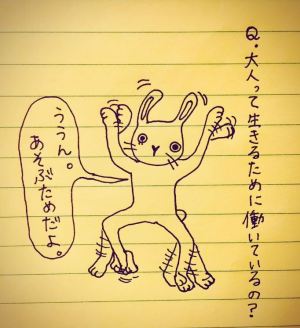 Q.大人って生きるために働いているの?
ううん。
あそぶためだよ。